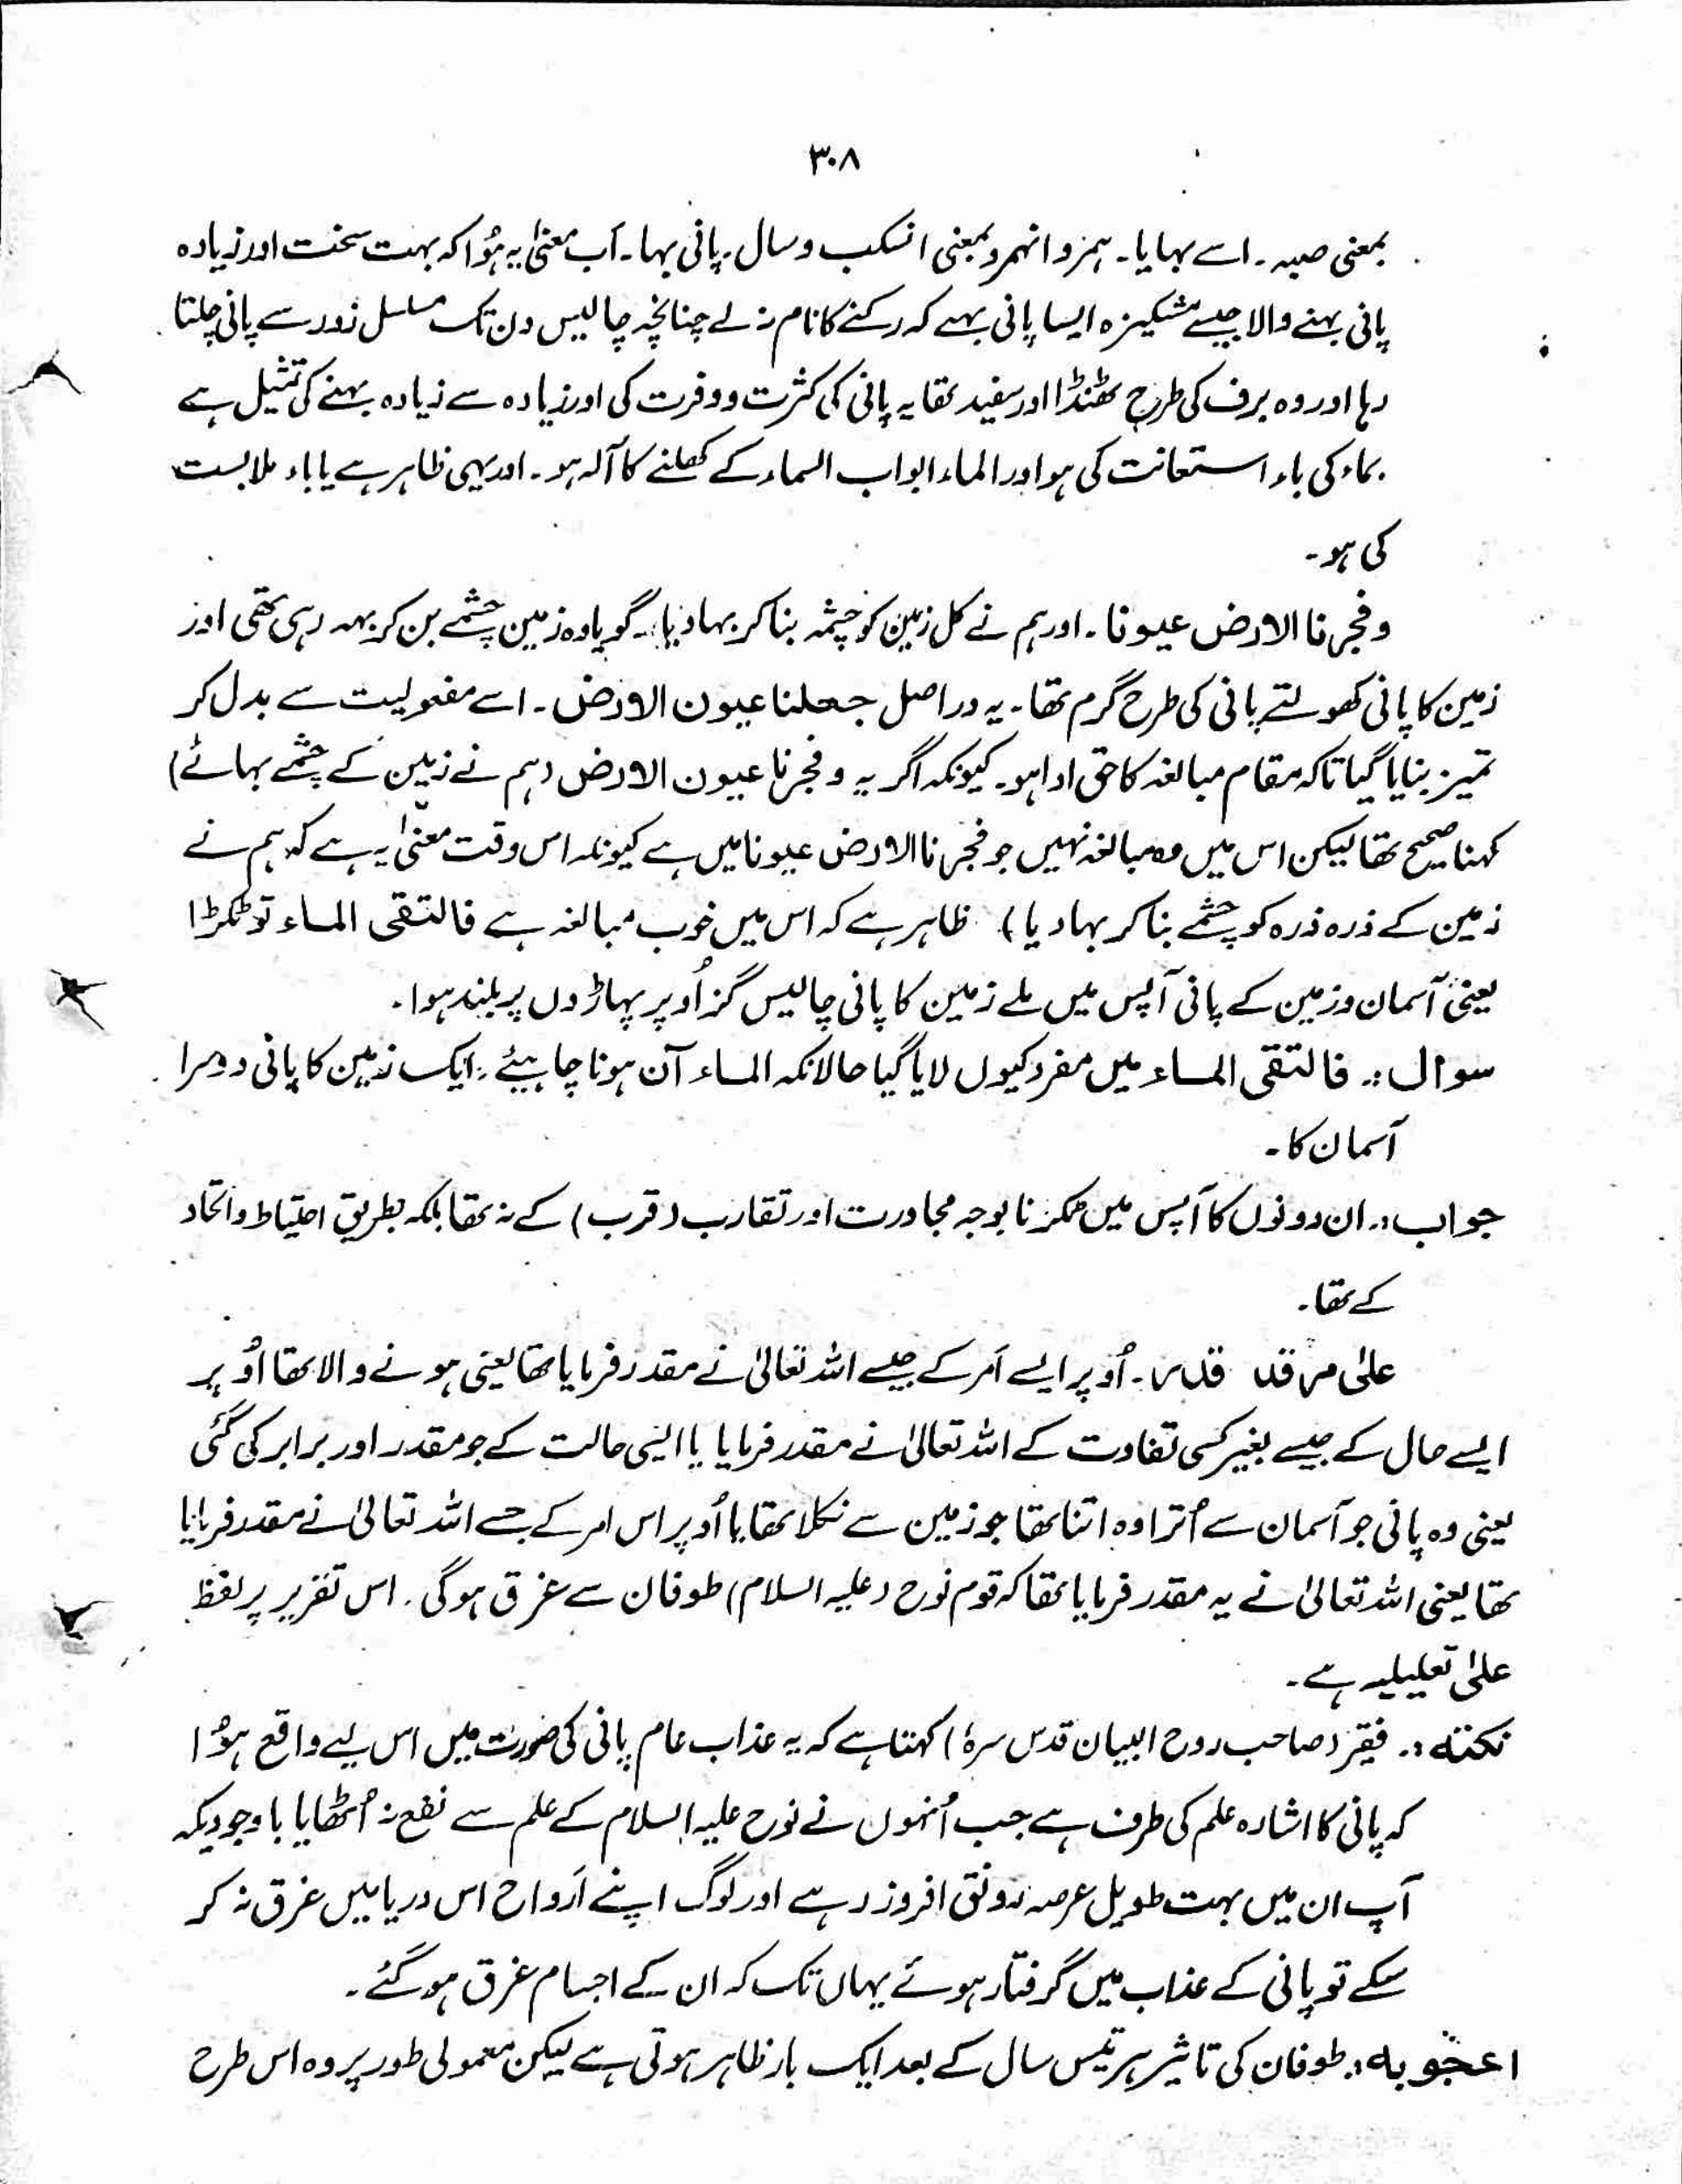 ۳۰۸
بمعنی صبہ۔ اسے بہایا۔ ہمر وانہمر بمعنی انسکب وسال۔ پانی بہا۔ اَب معنیٰ یہ ہُوا کہ بہت سخت اور زیادہ
پانی بہنے والا جیسے مشکیزہ ایسا پانی بہے کہ رکنے کا نام نہ لے چنانچہ چالیس دن تک مسلسل زور سے پانی چلتا
رہا اور وہ برف کی طرح ٹھنڈا اور سفید تھا یہ پانی کی کثرت ووفرت کی اور زیادہ سے زیادہ بہنے کی تمثیل ہے
بماء کی باء استعانت کی ہو اور الماء ابواب السماء کے کھلنے کا آلہ ہو۔ اور یہی ظاہر ہے یا باء ملابست
کی ہو۔
وفجرنا الارض عیونا۔ اور ہم نے کل زمین کو چشمہ بنا کر بہادیا۔ گویا وہ زمین چشمے بن کر بہہ رہی تھی اور
زمین کا پانی کھولتے پانی کی طرح گرم تھا۔ یہ دراصل جعلنا عیون الارض۔ اسے مفعولیت سے بدل کر
تمیز بنایا گیا تاکہ مقام مبالغہ کا حق ادا ہو۔ کیونکہ اگر یہ وفجرنا عیون الارض (ہم نے زمین کے چشمے بہائے)
کہنا صحیح تھا لیکن اس میں وہ مبالغہ نہیں جو فجرنا الارض عیونا میں ہے کیونکہ اس وقت معنیٰ یہ ہے کہ ہم نے
زمین کے ذرہ ذرہ کو چشمے بنا کر بہادیا) ظاہر ہے کہ اس میں خوب مبالغہ ہے فالتقی الماء تو ٹکڑا
یعنی آسمان وزمین کے پانی آپس میں ملے زمین کا پانی چالیس گز اُوپر پہاڑوں پر بلند ہوا۔
سوال :۔ فالتقی الماء میں مفرد کیوں لایا گیا حالانکہ الماء آن ہونا چاہیئے۔ ایک زمین کا پانی دوسرا
آسمان کا۔
جواب :۔ ان دونوں کا آپس میں ٹکرنا بوجہ مجاورت اور تقارب (قرب) کے نہ تھا بلکہ بطریق احتیاط واتحاد
کے تھا۔
علیٰ امر قد قدر۔ اُوپر ایسے اَمر کے جیسے اللہ تعالیٰ نے مقدر فرمایا تھا یعنی ہونے والا تھا اُوپر
ایسے حال کے جیسے بغیر کسی تفاوت کے اللہ تعالیٰ نے مقدر فرمایا یا ایسی حالت کے جو مقدر اور برابر کی گئی
یعنی وہ پانی جو آسمان سے اُترا وہ اتنا تھا جو زمین سے نکلا تھا یا اُوپر اس امر کے جسے اللہ تعالیٰ نے مقدر فرمایا
تھا یعنی اللہ تعالیٰ نے یہ مقدر فرمایا تھا کہ قوم نوح (علیہ السلام) طوفان سے غرق ہوگی۔ اس تقریر پر لفظ
علیٰ تعلیلیہ ہے۔
نکتہ :۔ فقیر (صاحب روح البیان قدس سرہٗ) کہتا ہے کہ یہ عذاب عام پانی کی صورت میں اس لیے واقع ہُوا
کہ پانی کا اشارہ علم کی طرف ہے جب اُنہوں نے نوح علیہ السلام کے علم سے نفع نہ اُٹھایا باوجودیکہ
آپ ان میں بہت طویل عرصہ رونق افروز رہے اور لوگ اپنے اَرواح اس دریا میں غرق نہ کر
سکے تو پانی کے عذاب میں گرفتار ہوئے یہاں تک کہ ان کے اجسام غرق ہوگئے۔
اعجوبہ :۔ طوفان کی تاثیر ہر تیس سال کے بعد ایک بار ظاہر ہوتی ہے لیکن معمولی طور پر وہ اس طرح